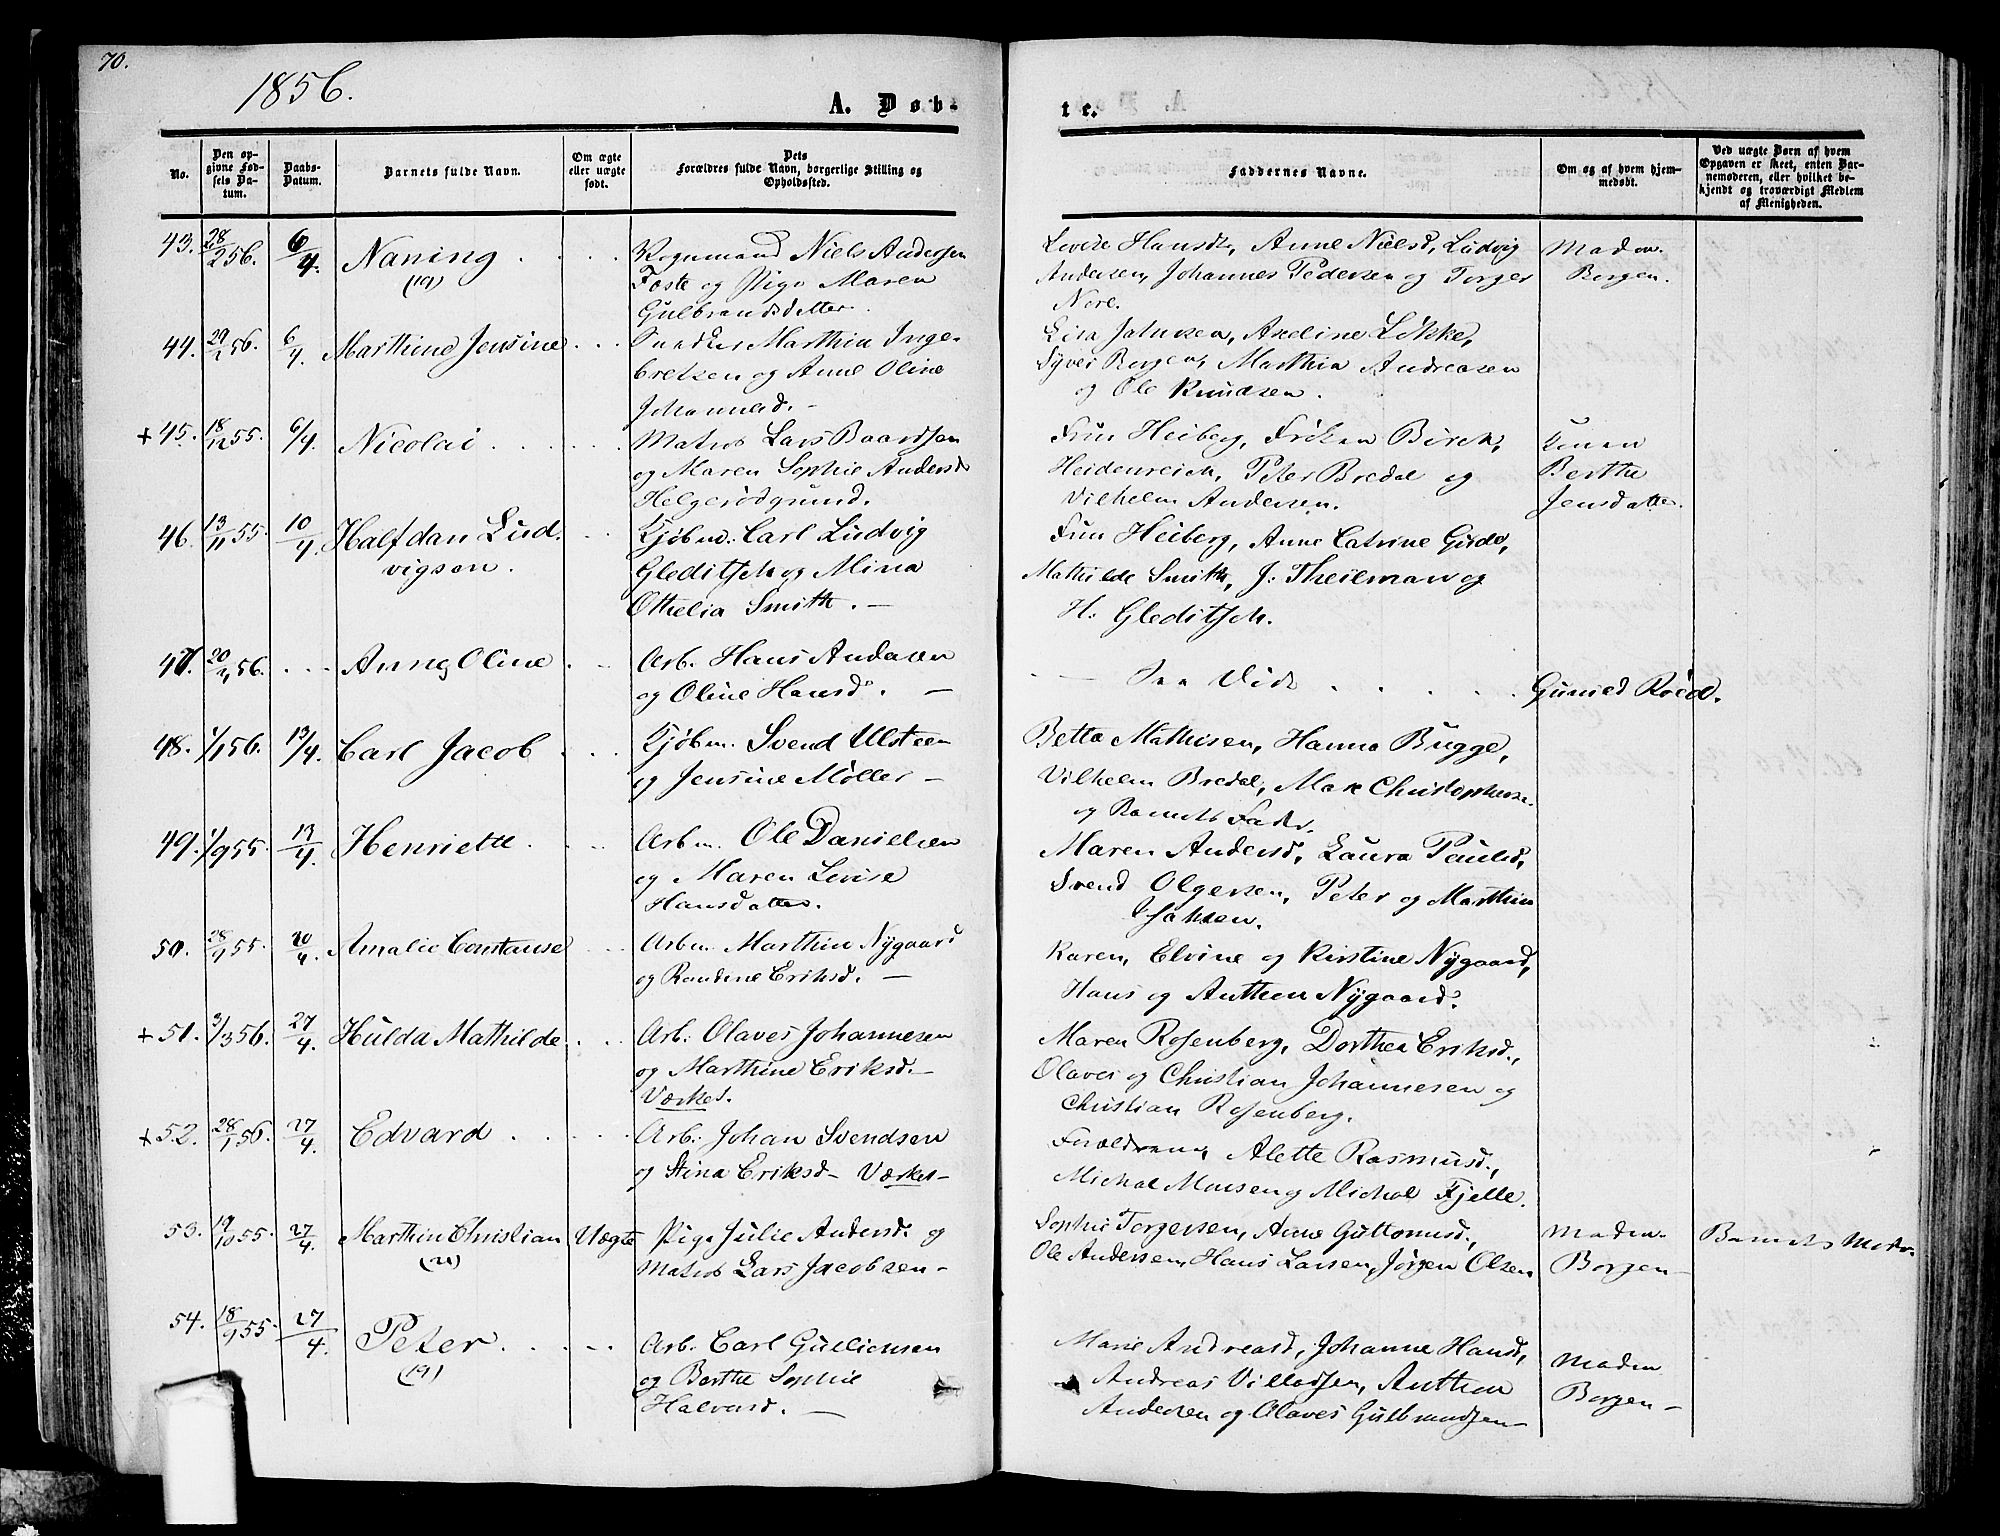 70.
1856.
A. Døb-
te.
No.
Den op-
givne Fød-
sels Da-
tum.
Daabs-
Datum.
Barnets fulde Navn.
Om ægte
eller uægte
født.
Dets
Forældres fulde Navn, borgerlige Stilling og
Opholdssted.
Faddernes Navne.
Om og af hvem hjem-
medøbt.
Ved uægte Børn af hvem
Opgaven er skeet, enten Bar-
nemoderen, eller hvilket be-
kjendt og troværdigt Medlem
af Menigheden.
43. 28/2 56. 6/4. Naning
(19)
Niels Andersen
Foste og Pige Maren
Gulbrandsdatter.
Levise Hansdt, Anne Nielsd, Ludvig
Andersen, Johannes Pedersen og Torger
Nore.
Madm.
Borgen.
44. 29/1 56. 6/4. Marthine Jensine
Snedker Marthin Inge-
bretsen og Anne Oline
Johannesd. -
Lisa Johnsen, Axeline Løkke,
Syver Borgen, Marthin Andreasen
og Ole Knudsen.
+ 45. 18/12 55. 6/4 Nicolai
Matros Lars Baardsen
og Maren Sophie Andersd
Helgerødgrund.
Fru Heiberg, Frøken Birch,
Heidenreich, Peter Bredal og
Vilhelm Andersen.
Konen
Berthe
Jensdatter.
46. 13/11 55. 10/4. Halfdan Lud-
vigsen.
Kjøbm: Carl Ludvig
Gleditsch og Mina
Othelia Smith. -
Fru Heiberg, Anne Catrine Gude,
Mathilde Smith, J: Theilman og
H: Gleditsch.
47. 20/1 56. Anne Oline
Arb. Hans Andersen
og Oline Hansd. -
Gunild Røed.
48. 1/1 56. 13/4. Carl Jacob
Kjøbm. Svend Ulsteen
og Jensine Møller -
Betta Mathisen, Hanna Bugge,
Vilhelm Bredal, Max Christophersen
og Barnets Fader.
49. 1/9 55. 13/4. Henriette
Arbm. Ole Danielsen
og Maren Levise
Hansdatter.
Maren Andersd, Laura Paulsd,
Svend Olgersen, Peter og Marthin
50. 28/9 55. 20/4. Amalie Constanse
Arbm. Marthin Nygaard
og Randine Eriksd. -
Karen, Elvine og Kirstine Nygaard,
Hans og Anthon Nygaard.
+ 51. 3/3 56. 27/4. Hulda Mathilde
Arb: Olaves Johannesen
og Marthine Eriksd. -
Værket.
Maren Rosenberg, Dorthea Eriksd.,
Olaves og Christian Johannesen og
Christian Rosenberg.
+ 52. 28/1 56. 27/4. Edvard
Arb: Johan Svendsen
og Stina Eriksd - Værket -
Forældrene, Alette Rasmusd.,
Michal Monsen og Michal Fjelle.
53. 19/10 55. 27/4. Marthin Christian Uægte
(21)
Pige Julie Andersd. og
Matros Lars Jacobsen -
Sophie Torgersen, Anne Guttormsd.,
Ole Andersen, Hans Larsen, Jørgen Olsen
Madm.
Borgen -
Barnets Moder
54. 18/9 55. 27/4. Peter
(19)
Arb. Carl Gulliksen
og Berthe Sophie
Halvorsd. -
Marie Andreasd, Johanne Hansd,
Andreas Villadsen, Anthon
Andersen og Olaves Gulbrandsen -
Madm
Borgen -